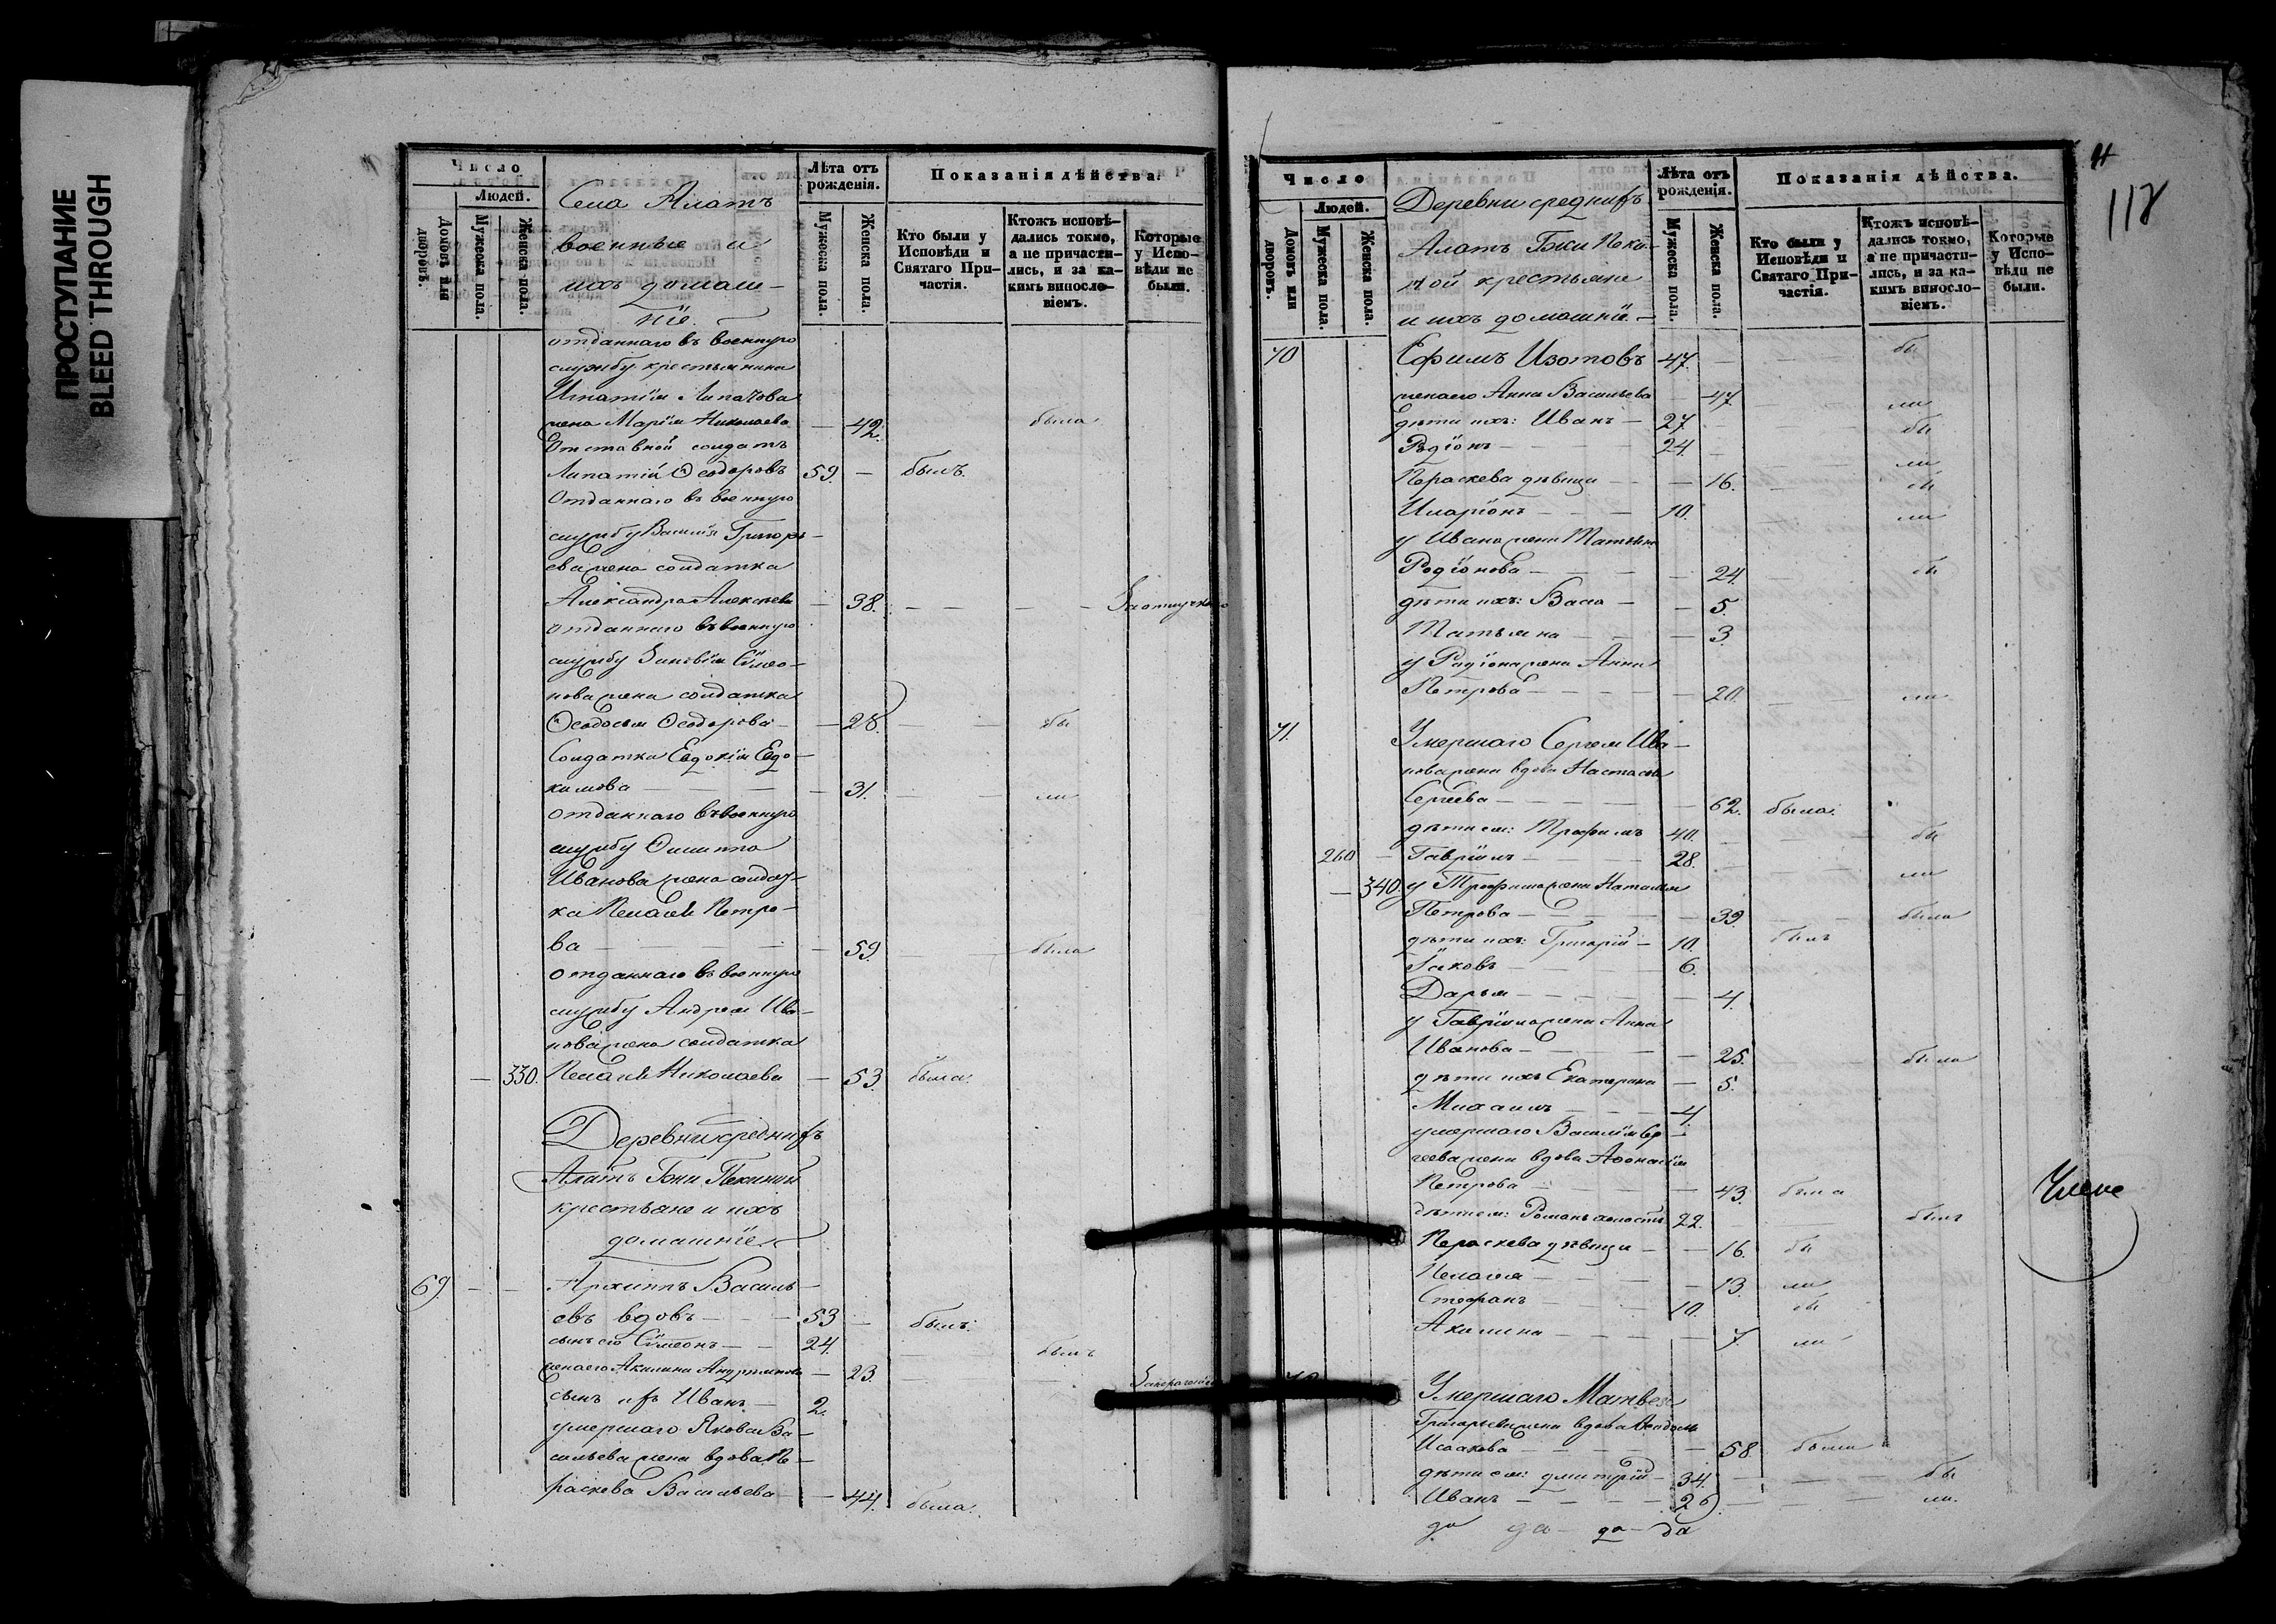 ПРОСТУПАНИЕ
BLEED THROUGH
Число
Людей.
Домовъ или дворовъ.
Мужеска пола.
Женска пола.
Села Алатъ
военные и
ихъ домаш-
ніе
Лѣта отъ рожденія.
Мужеска пола.
Женска пола.
Показанія дѣйства.
Кто были у Исповѣди и Святаго Причастія.
Ктожъ исповѣдались токмо, а не причастились, и за какимъ винословіемъ.
Которые у Исповѣди не были.
отданнаго въ военную
службу крестьянина
Игнатія Липатова
жена Марія Николаева — 42. была
Отставной солдатъ
Липатій Ѳеодоровъ 59. — былъ.
Отданнаго въ военную
службу Василія Григорь-
ева жена солдатка
Александра Алексѣева — 38. — — — —
отданнаго въ военную
службу Зиновія Сѵмео-
нова жена солдатка
Ѳеодосья Ѳеодорова — — 28. — — бы
Солдатка Евдокія Евдо-
кимова — — — — 31. — — ли
отданнаго въ военную
службу Филиппа
Иванова жена солдат-
ка Пелагея Петро-
ва — — — — 59. — — была
отданнаго въ военную
службу Андрея Ива-
нова жена солдатка
— 330. Пелагея Николаева — 53. была.
Деревни среднихъ
Алатъ
крестьяне и ихъ
домашніе
69. — — Архиппъ Василь-
евъ вдовъ — — — 53 — былъ.
сынъ его Сѵмеонъ — — 24. — былъ
жена его Акилина — 23. —
сынъ ихъ Иванъ — 2.
умершаго Якова Ва-
сильева жена вдова Пе-
раскева Васильева — — 44. была.
118
Число
Людей.
Домовъ или дворовъ.
Мужеска пола.
Женска пола.
Деревни среднихъ
Алатъ
крестьяне
и ихъ домашніе —
Лѣта отъ рожденія.
Мужеска пола.
Женска пола.
Показанія дѣйства.
Кто были у Исповѣди и Святаго Причастія.
Ктожъ исповѣдались токмо, а не причастились, и за какимъ винословіемъ.
Которые у Исповѣди не были.
70 Ефимъ Изотовъ 47. — — бы
жена его Анна Васильева — 47. — ли
дѣти ихъ: Иванъ — 27. — бы
Родіонъ — — 24. — — ли
Параскева дѣвица — — 16. — бы
Иларіонъ — — — 10. — ли
у Ивана жена Татьяна
Родіонова — — — — 24. — бы
дѣти ихъ: Васса — — 5.
Татьяна — — — 3.
у Родіона жена Анна
Петрова — — — — 20. — — ли
71. Умершаго Сергея Ива-
нова жена вдова Настасья
Сергеева — — — — 62. была.
дѣти ея: Трофимъ 40. — — бы
260 — Гавріилъ — — — 28. — — ли
— 340. у Трофима жена Наталья
Петрова — — — — 39. — — была
дѣти ихъ: Григорій — 10. былъ
Іаковъ — — — 6.
Дарья — — — — 4.
у Гавріила жена Анна
Иванова — — — — 25. — — была
дѣти ихъ Екатерина — 5.
Михаилъ — — — 4.
умершаго Василія Сер-
геева жена вдова Аѳанасія
Петрова — — — — 43. была
дѣти ея: Романъ холостъ 22. — — былъ
Параскева дѣвица — — 16. бы
Пелагея — — — — 13. ли
Стефанъ — — — 10. бы
Акилина — — — — 7. ли
Умершаго Матвея
Григорьева жена вдова Ѳеодосья
Исаакова — — — — 58. была
дѣти ея: Дмитрій — 34. — — бы
Иванъ — — — — 26. — — ли.
да да да да